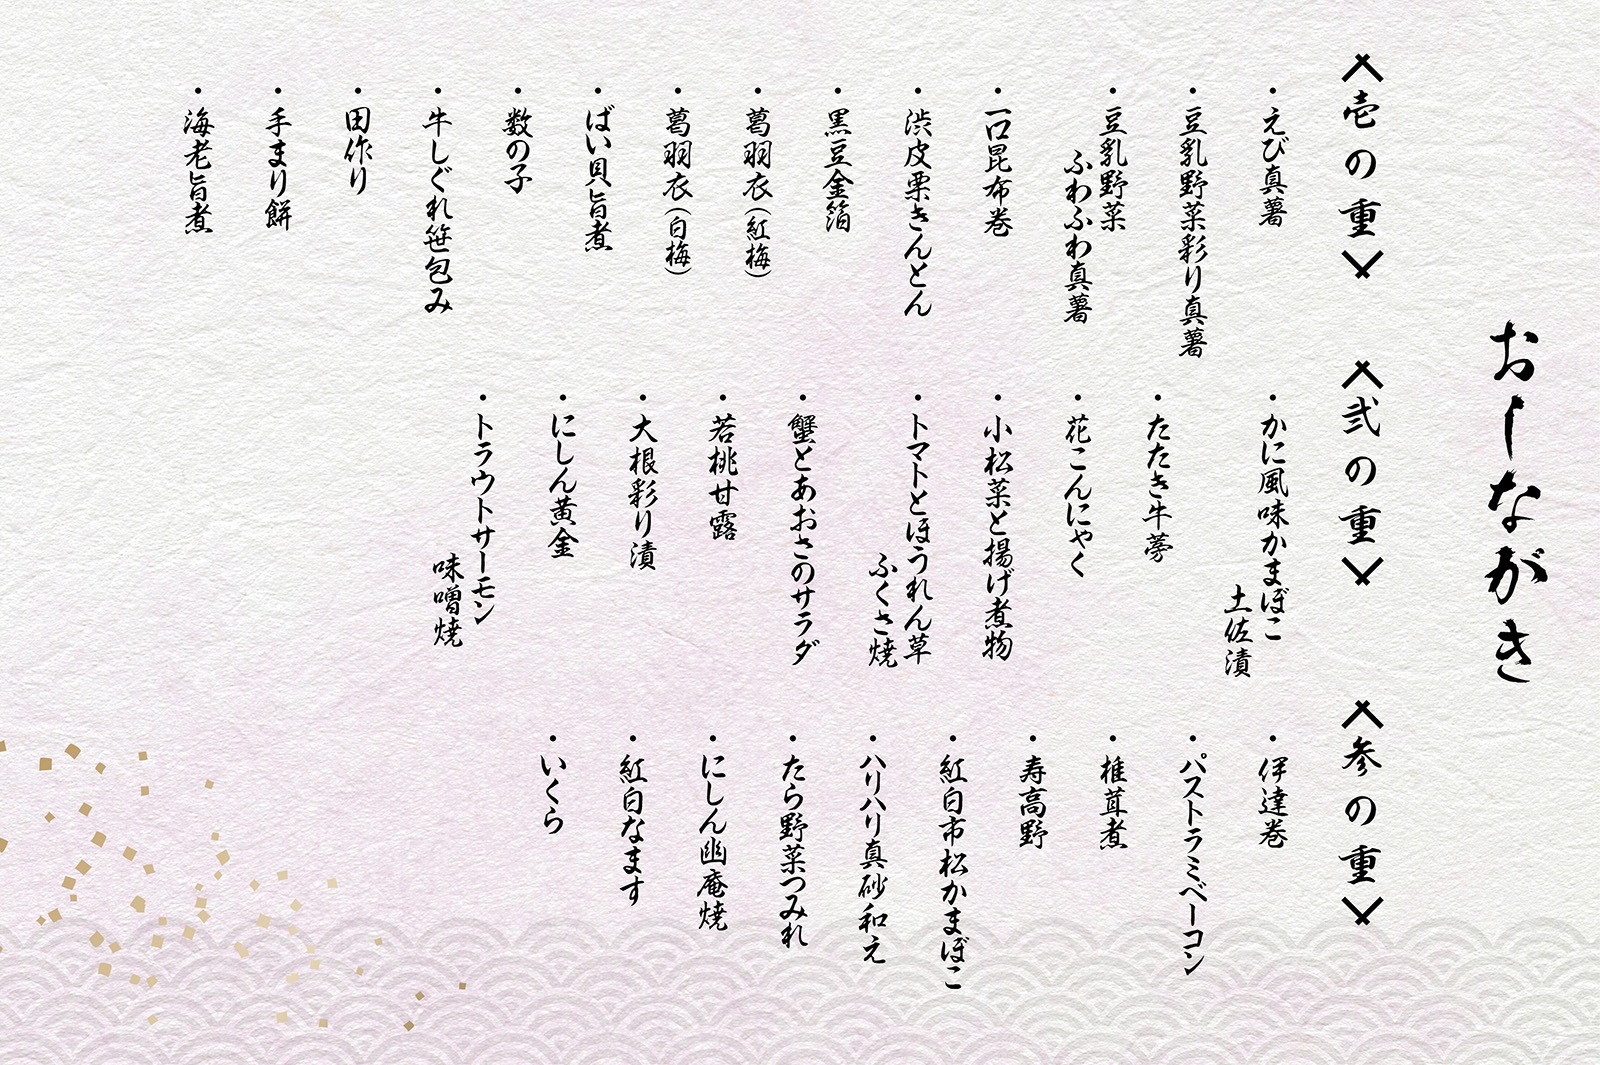 おしながき
壱の重
・えび真薯
・豆乳野菜彩り真薯
・豆乳野菜
ふわふわ真薯
・一口昆布巻
・渋皮栗きんとん
・黒豆金箔
・葛羽衣(紅梅)
・葛羽衣(白梅)
・ばい貝旨煮
・数の子
・牛しぐれ笹包み
・田作り
・手まり餅
・海老旨煮
弐の重
・かに風味かまぼこ
土佐漬
・たたき牛蒡
・花こんにゃく
・小松菜と揚げ煮物
・トマトとほうれん草
ふくさ焼
・蟹とあおさのサラダ
・若桃甘露
・大根彩り漬
・にしん黄金
・トラウトサーモン
味噌焼
参の重
・伊達巻
・パストラミベーコン
・椎茸煮
・寿高野
・紅白市松かまぼこ
・ハリハリ真砂和え
・たら野菜つみれ
・にしん幽庵焼
・紅白なます
・いくら